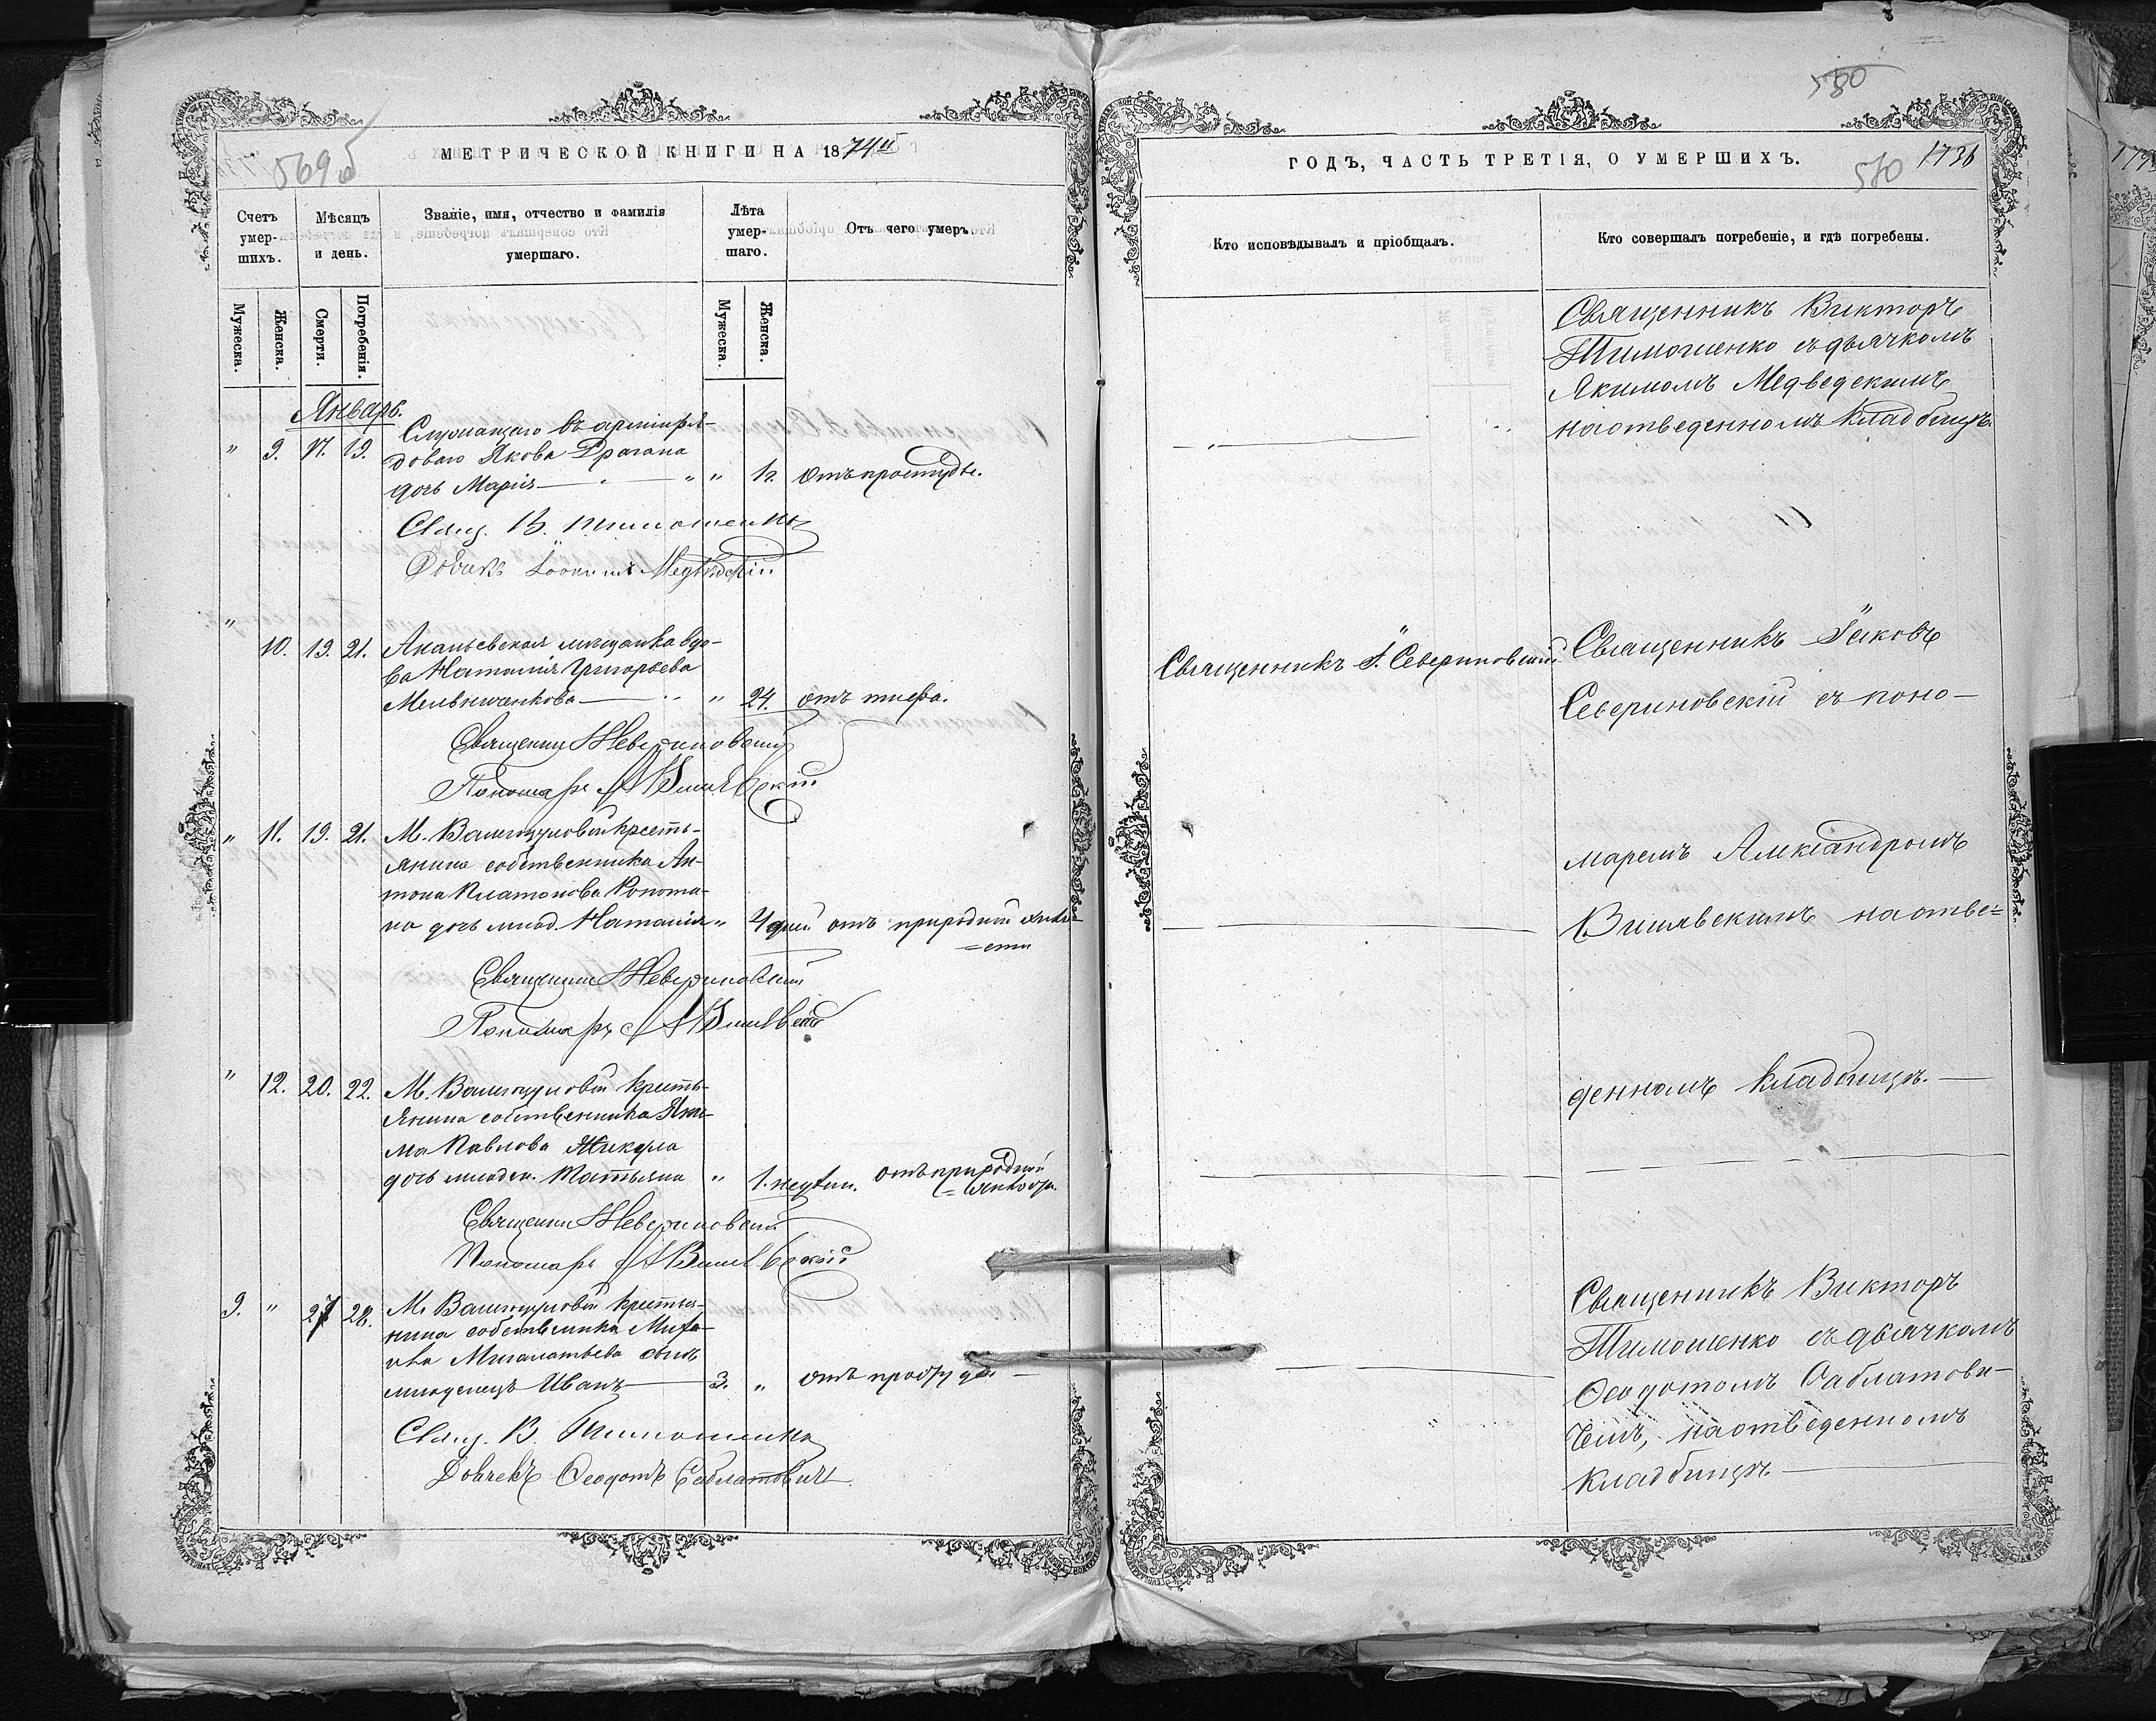 569 об
МЕТРИЧЕСКОЙ КНИГИ НА 1874й
Счетъ умер-шихъ.
Мѣсяцъ и день.
Званіе, имя, отчество и фамилія умершаго.
Лѣта умер-шаго.
Отъ чего умеръ.
Мужеска.
Женска.
Смерти.
Погребенія.
Мужеска.
Женска.
Январь.
Служащаго въ арміи ря-
" 9. 17. 19. доваго Якова Драгана
дочь Марія — " " 1/2. Отъ простуды.
Свящ. В. Тимошенко
Іоакимъ Медведскій
" 10. 19. 21. Ананьевская мѣщанка вдо-
ва Наталія Григорьева
Мельниченкова — " 24. отъ тифа.
Священникъ І Севериновскій
Пономарь А Вишевскій
" 11. 19. 21. М. Валегоцуловой кресть-
янина собственника Ан-
тона Платонова
на дочь млад. Наталія " 4 дней отъ природной слабо-
=сти
Священникъ І Севериновскій
Пономарь А Вишевскій
" 12. 20. 22. М. Валегоцуловой кресть-
янина собственника
ма Павлова
дочь младен. Татьяна " 1. недѣли. отъ природной
= слабости.
Священникъ І Севериновскій
Пономарь А Вишевскій
9. " 27 28. М. Валегоцуловой крестья-
нина собственника Миха-
ила сынъ
младенецъ Иванъ — 3. " отъ простуды —
Свящ. В. Тимошенко
Дьячекъ Ѳеодотъ Саблатовичъ
580
ГОДЪ, ЧАСТЬ ТРЕТІЯ, О УМЕРШИХЪ.
570 1736
Кто исповѣдывалъ и пріобщалъ.
Кто совершалъ погребеніе, и гдѣ погребены.
Священникъ Викторъ
Тимошенко съ дьячкомъ
Якимомъ Медведскимъ
на отведенномъ кладбищѣ.
Священникъ І. Севериновскій.
Священникъ Іаковъ
Севериновскій съ поно-
маремъ Александромъ
Вишевскимъ на отве=
денномъ кладбищѣ. —
Священникъ Викторъ
Тимошенко съ дьячкомъ
Ѳеодотомъ Саблатови-
чемъ, на отведенномъ
кладбищѣ. —